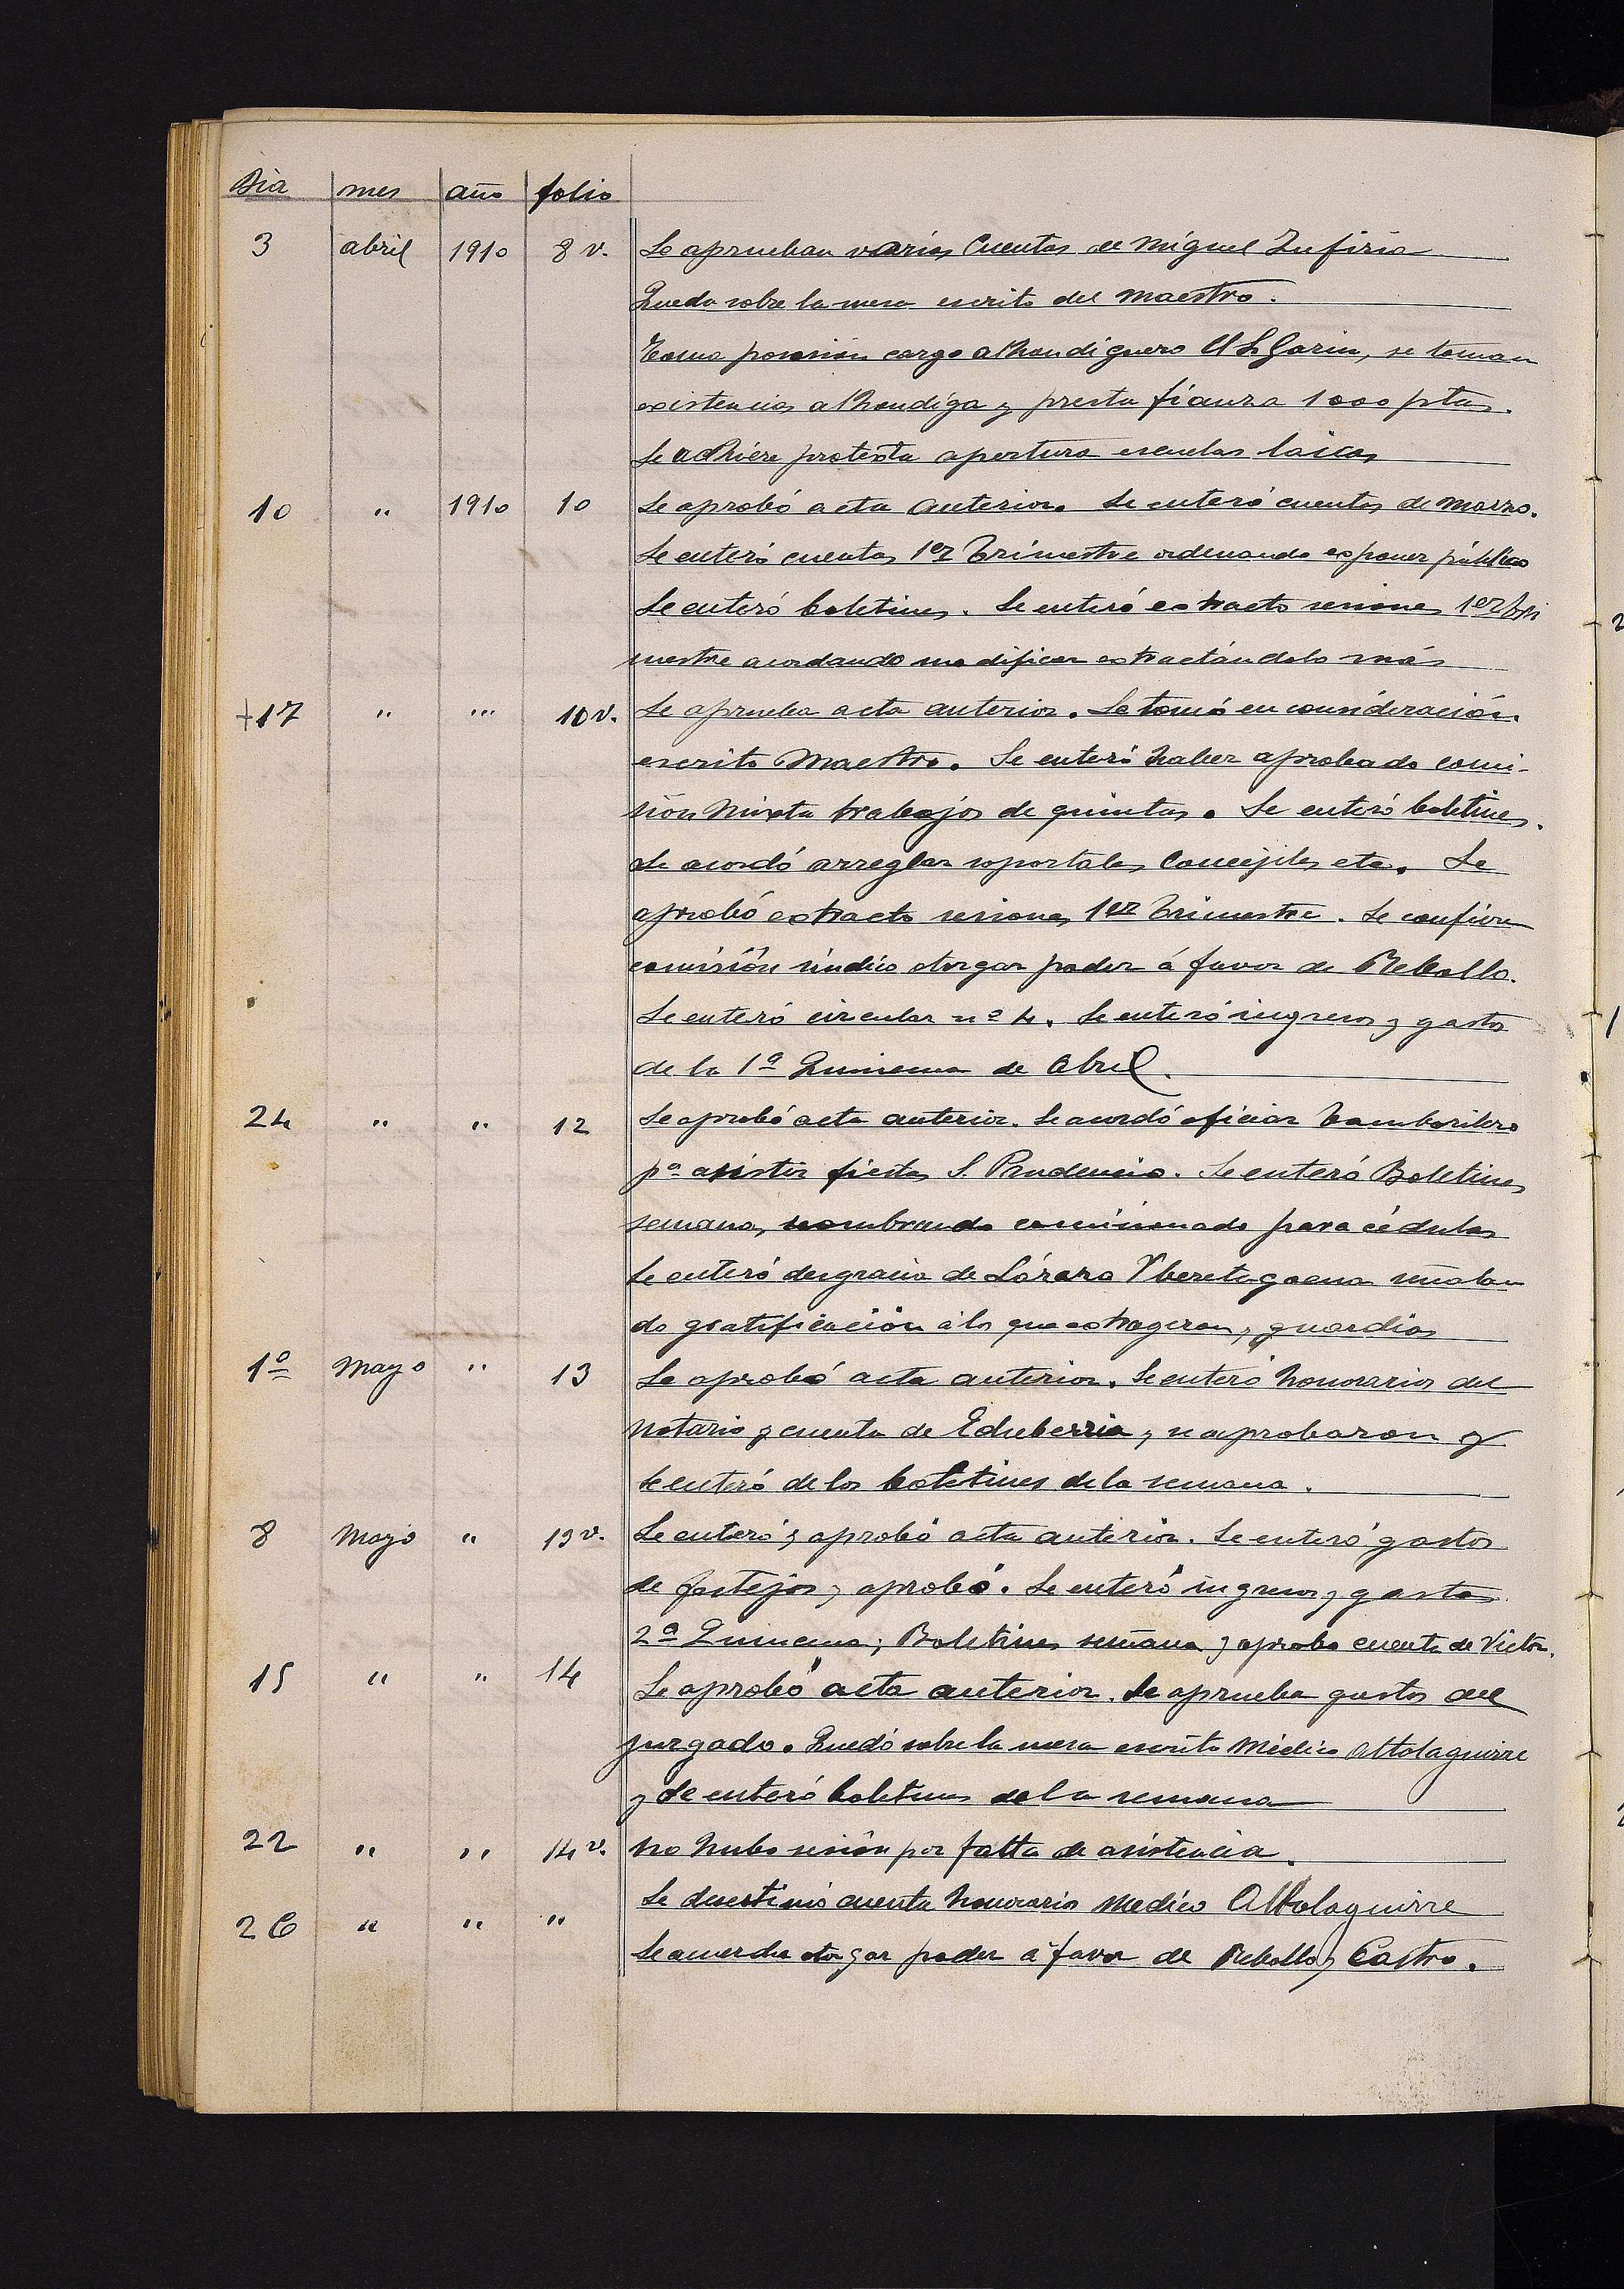 Dia mes año folio
3 abril 1910 8 v. Se aprueban varias Cuentas de Miguel Zufiria
Queda sobre la mesa escrito del Maestro.
Toma posesión cargo alhondiguero Garin, se toman
existencias alhondiga y presta fianza 1000 ptas.
Se adhiere protesta apertura escuelas láicas
10 " 1910 10 Se aprobó acta anterior. Se enteró cuentas de Marzo.
Se enteró cuentas 1er Trimestre ordenando exponer público
Se enteró boletines. Se enteró extracto sesiones 1er tri
mestre acordando modificar extractándolo más
+17 " " 10 v. Se aprueba acta anterior. Se tomó en consideración
escrito Maestro. Se enteró haber aprobado comi-
sión Mixta trabajos de quintas. Se enteró boletines.
Se acordó arreglar soportales Concejiles etc. Se
aprobó extracto sesiones 1er Trimestre. Se confiere
comisión síndico otorgar poder á favor de Rebollo.
Se enteró circular nº 4. Se enteró ingresos y gastos
de la 1ª Quincena de Abril.
24 " " 12 Se aprobó acta anterior. Se acordó oficiar Tamborilero
pª asistir fiestas S. Prudencio. Se enteró Boletines
semana, nombrando comisionado para cédulas
Se enteró desgracia de Lázaro Yberetagoena señalan
do gratificación á los que extrageron y guardias
1º Mayo " 13 Se aprobó acta anterior. Se enteró honorarios del
Notario y cuenta de Echeberria, se aprobaron y
se enteró de los boletines de la semana.
8 Mayo " 13 v. Se enteró y aprobó acta anterior. Se enteró gastos
de festejos y aprobó. Se enteró ingresos y gastos
2ª Quincena; Boletines semana y aprobó cuenta de Victor.
15 " " 14 Se aprobó acta anterior. Se aprueba gastos del
juzgado. Quedó sobre la mesa escrito Médico Altolaguirre
y se enteró boletines de la semana
22 " " 14 v. No hubo sesión por falta de asistencia.
26 " " " Se desestimó cuenta honorarios Medico Altolaguirre
Se acuerda otorgar poder á favor de Rebollo y Castro.